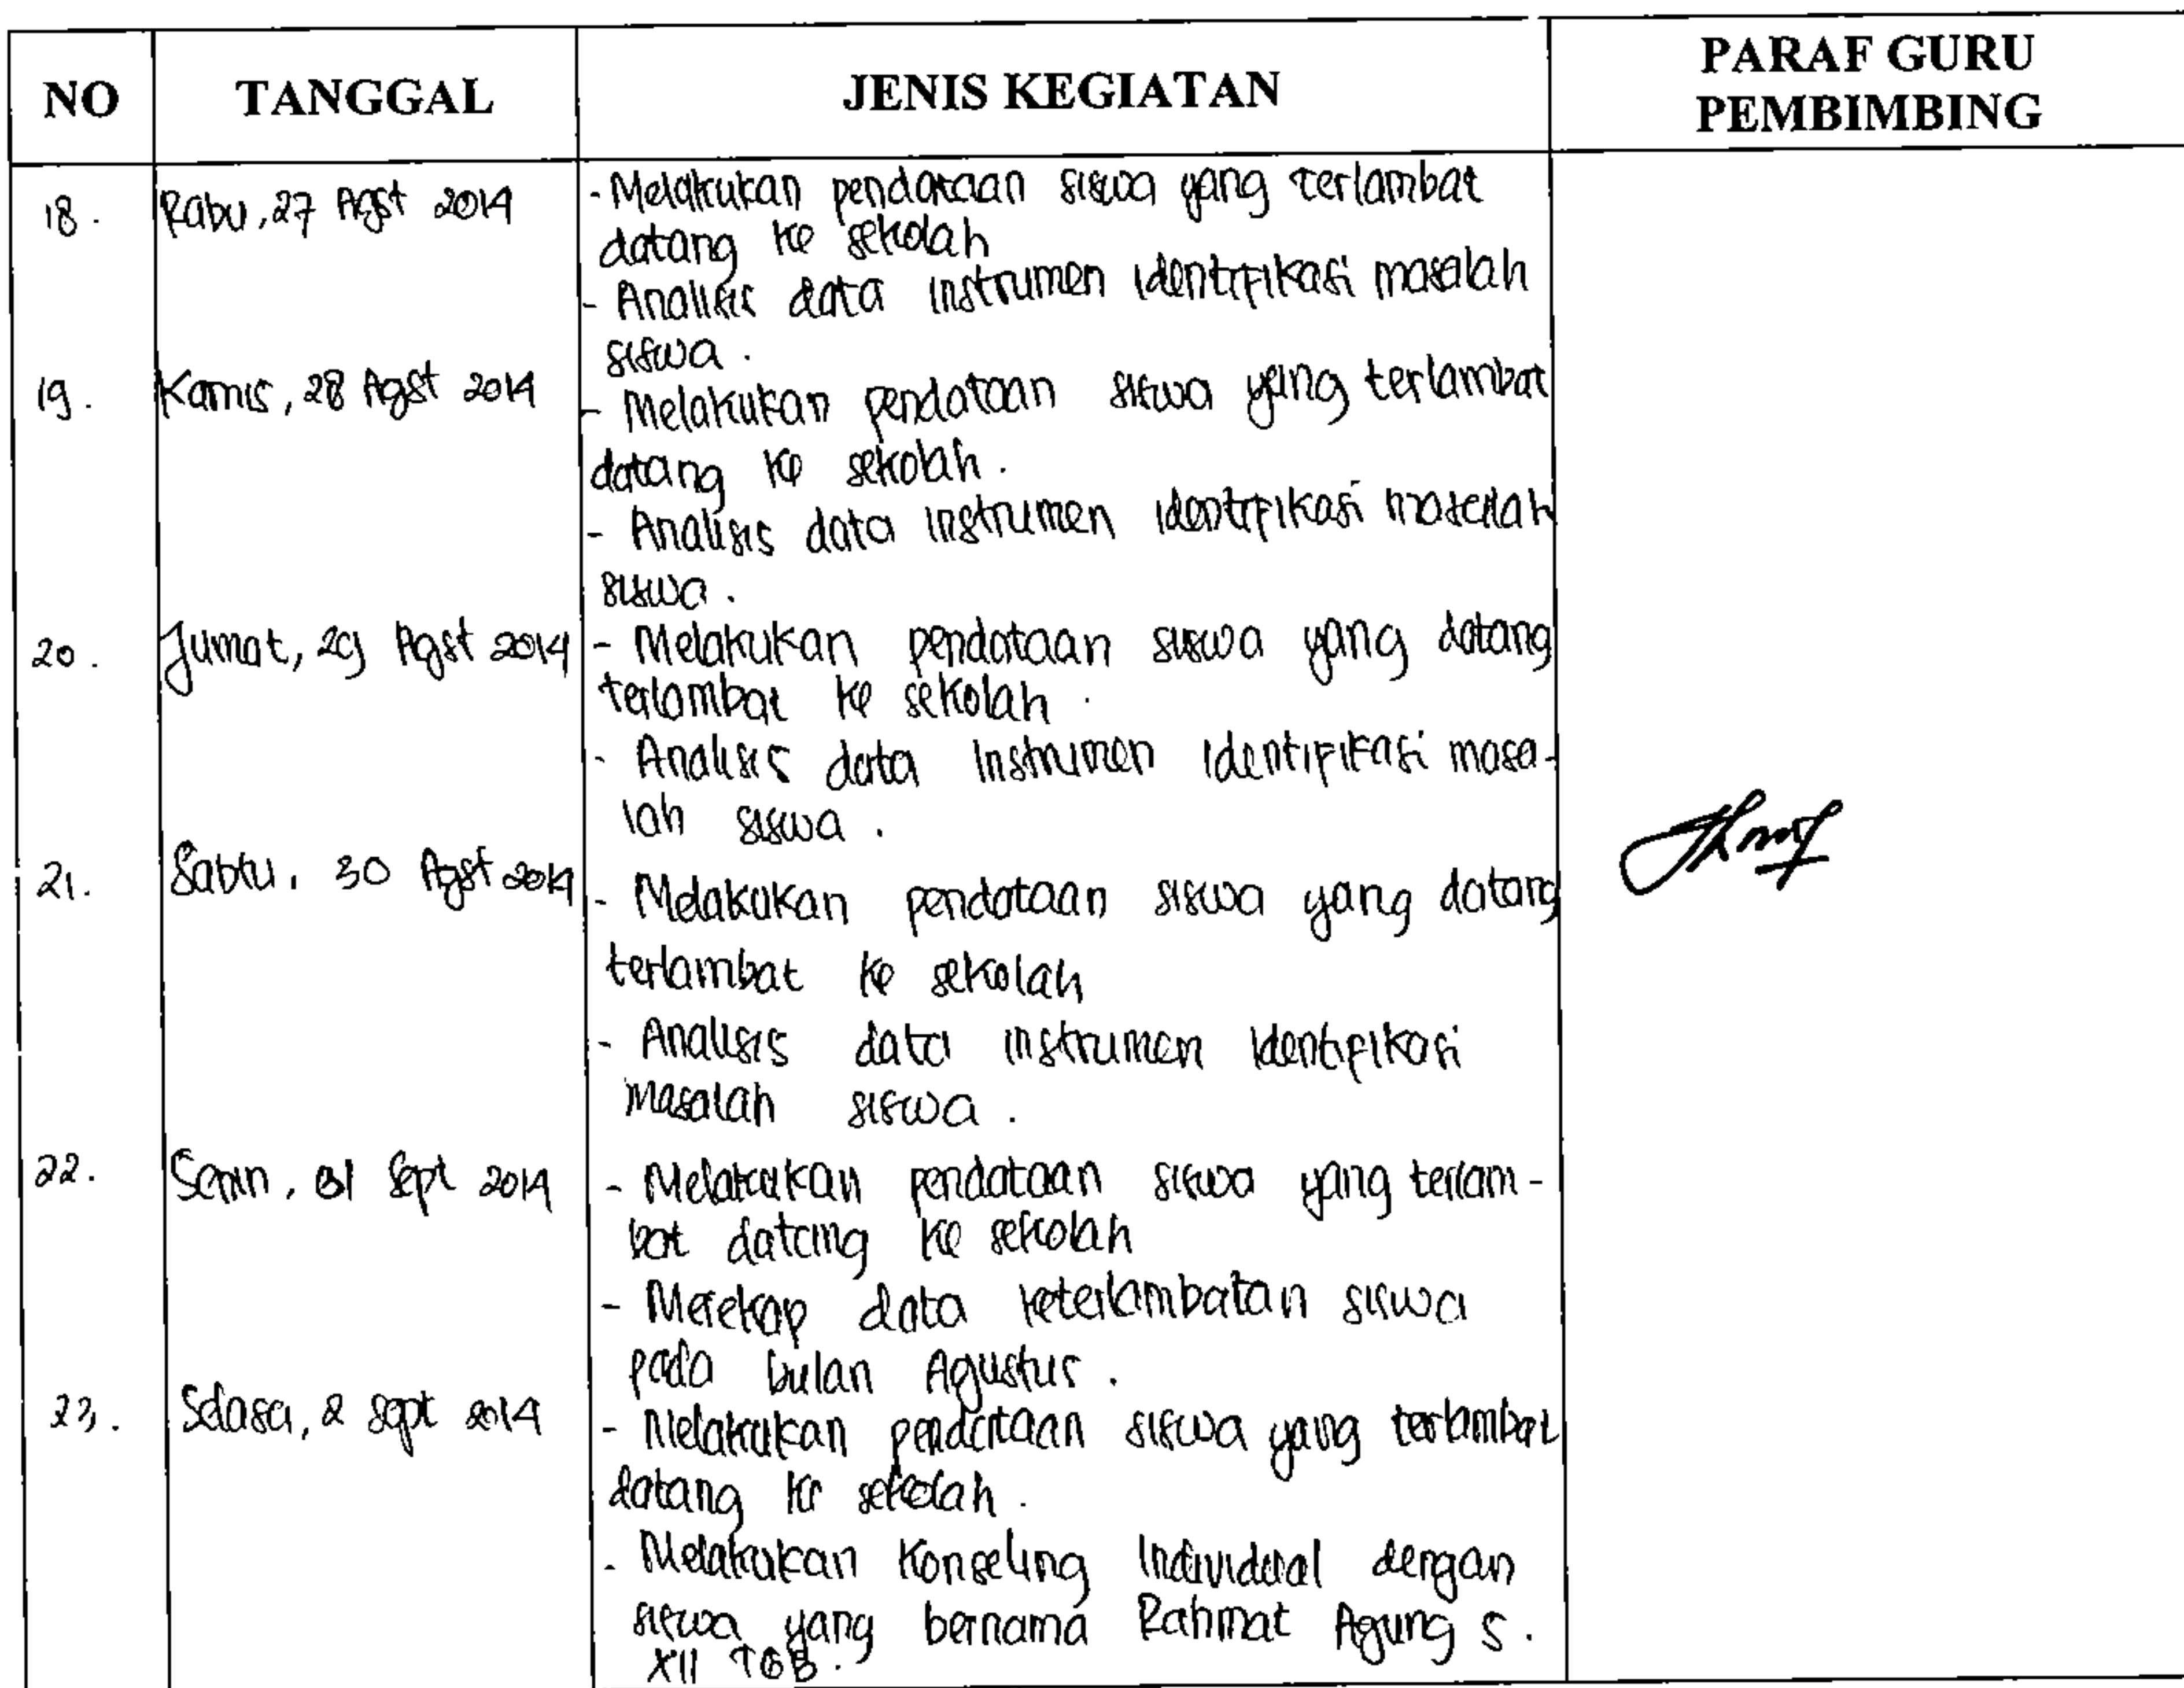 NO TANGGAL JENIS KEGIATAN PARAF GURU
PEMBIMBING
18. Rabu, 27 Agst 2014 - Melakukan pendataan siswa yang terlambat
datang ke sekolah
- Analisis data instrumen identifikasi masalah
siswa.
19. Kamis, 28 Agst 2014 - Melakukan pendataan siswa yang terlambat
datang ke sekolah.
- Analisis data instrumen identifikasi masalah
siswa.
20. Jumat, 29 Agst 2014 - Melakukan pendataan siswa yang datang
terlambat ke sekolah.
- Analisis data instrumen identifikasi masa-
lah siswa.
21. Sabtu, 30 Agst 2014 - Melakukan pendataan siswa yang datang
terlambat ke sekolah
- Analisis data instrumen identifikasi
masalah siswa.
22. Senin, 01 Sept 2014 - Melakukan pendataan siswa yang terlam-
bat datang ke sekolah
- Merekap data keterlambatan siswa
pada bulan Agustus.
23. Selasa, 2 Sept 2014 - Melakukan pendataan siswa yang terlambat
datang ke sekolah.
- Melakukan Konseling Individual dengan
siswa yang bernama Rahmat Agung S.
XII TGB.